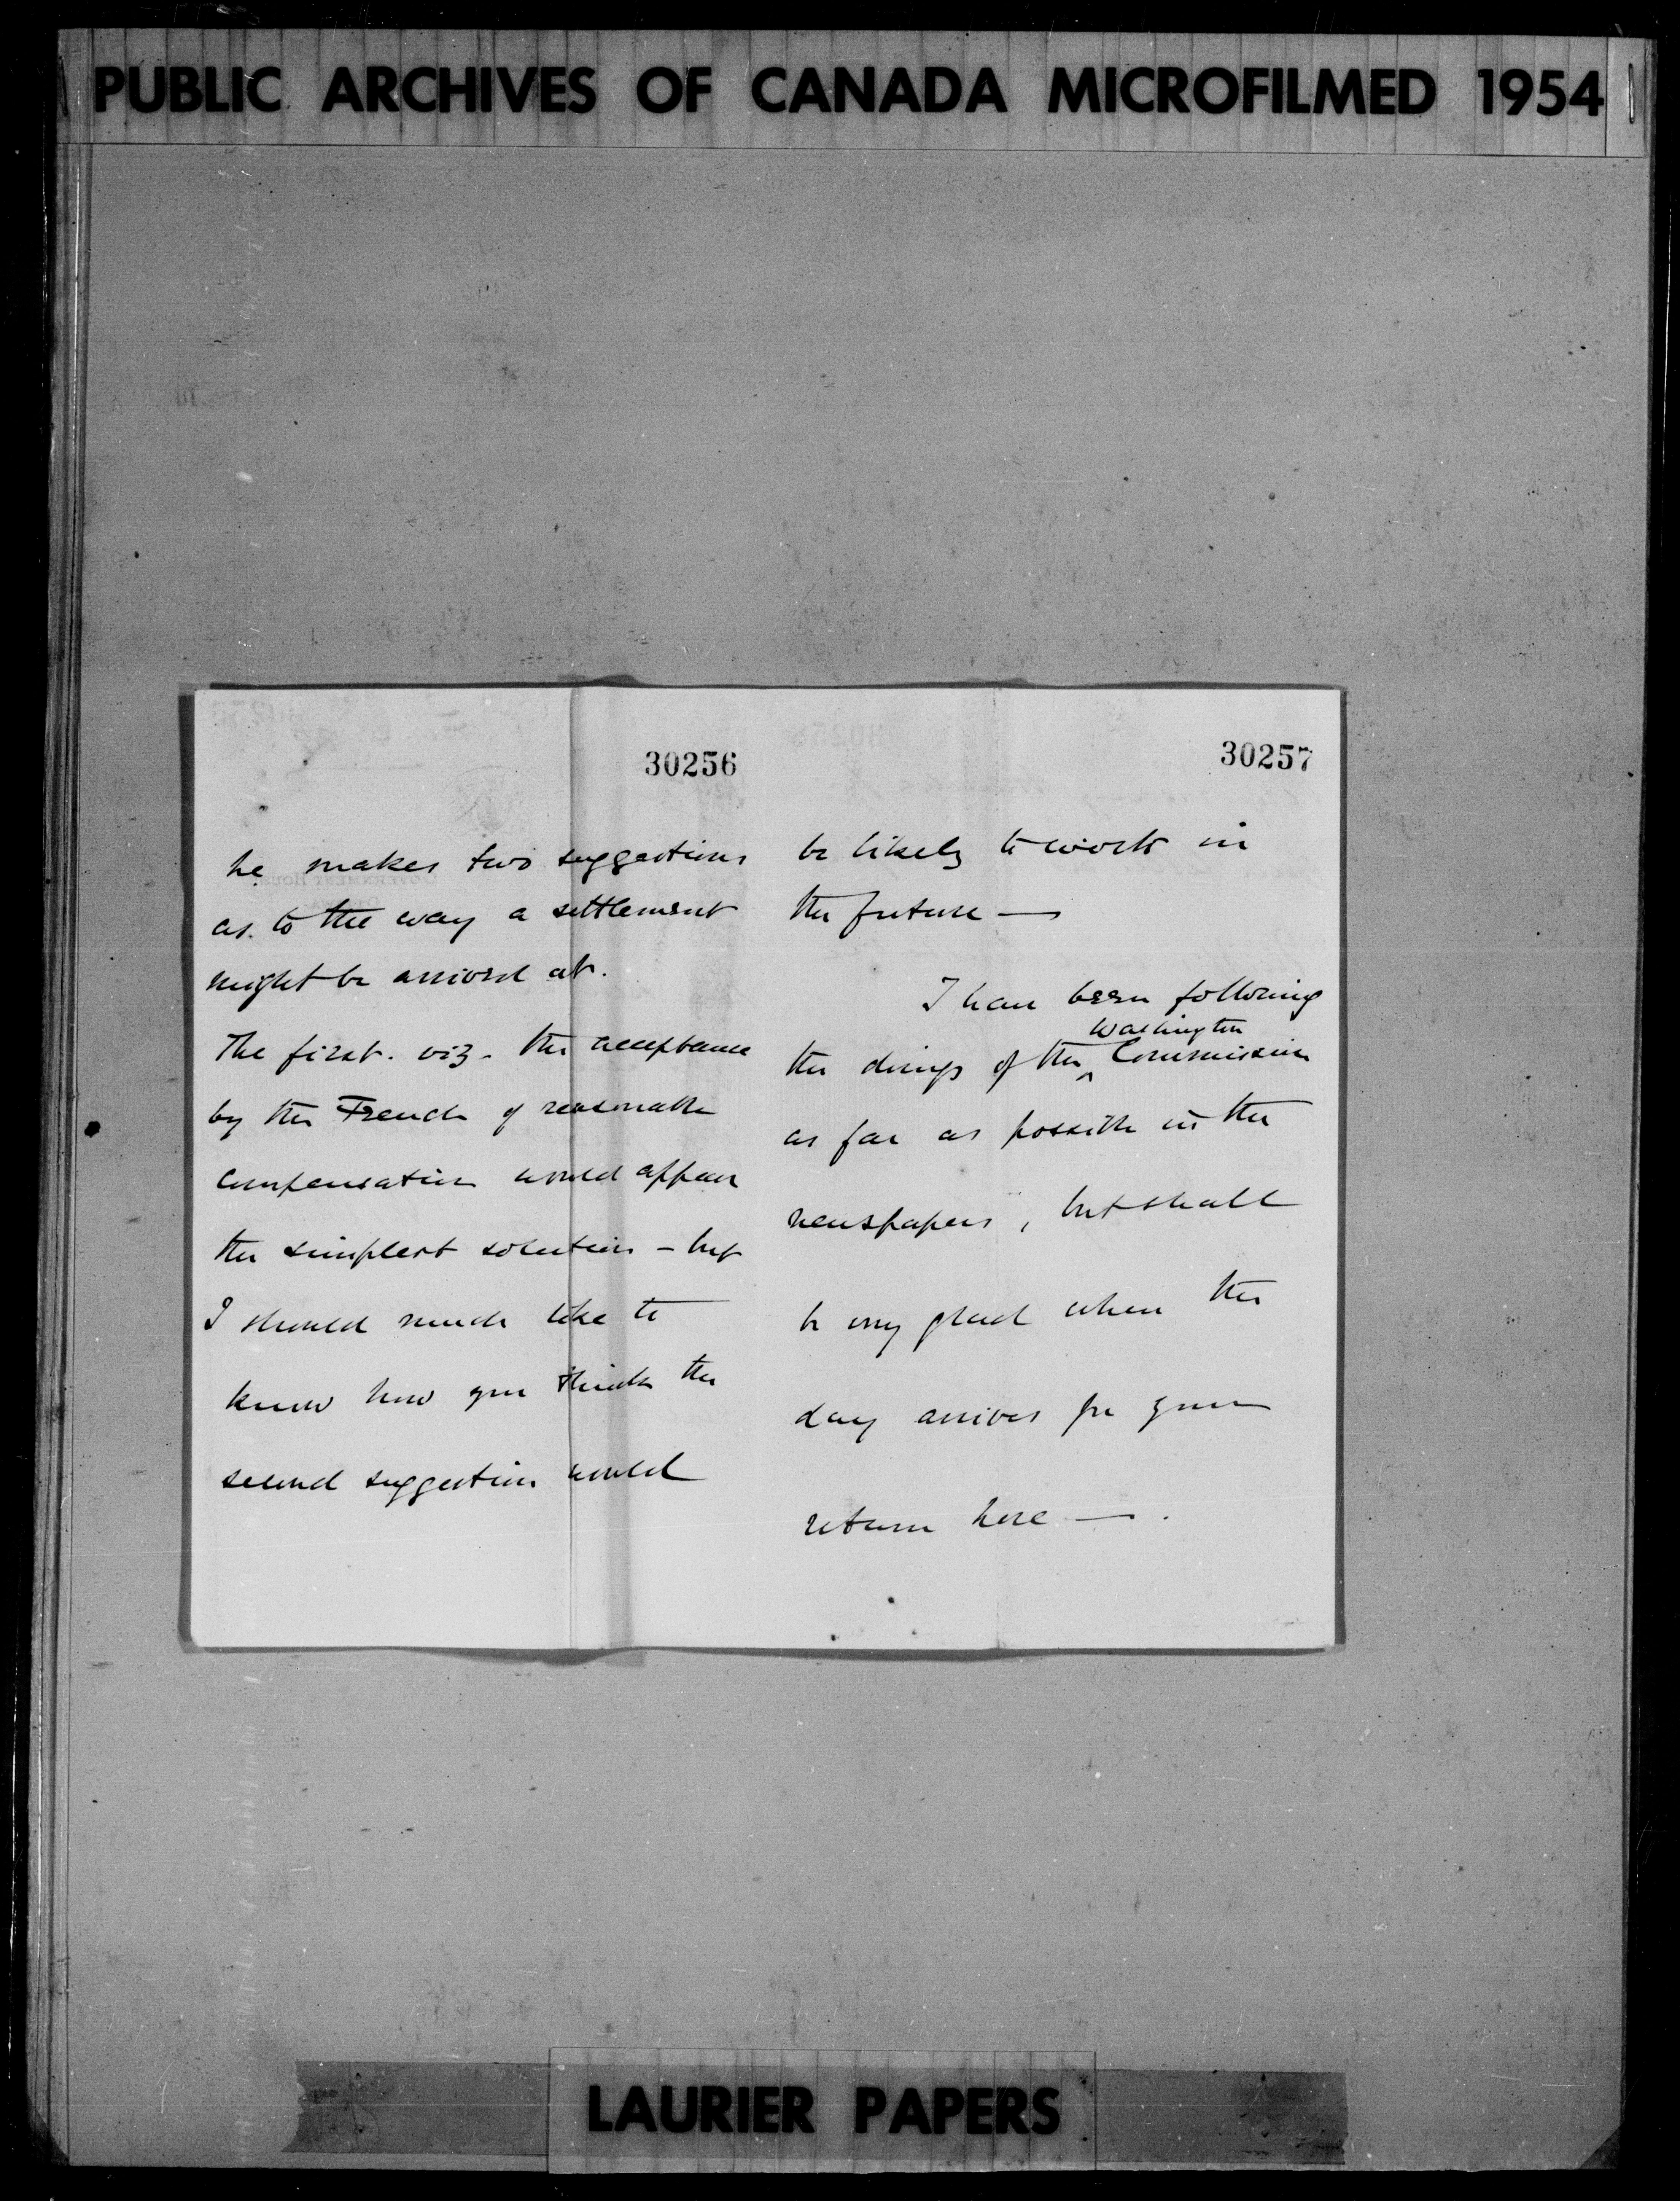 PUBLIC ARCHIVES OF CANADA MICROFILMED 1954
30256
he makes two suggestions
as to the way a settlement
might be arrived at.
The first. viz. the acceptance
by the French of reasonable
compensation would appear
the simplest solution - but
I should much like to
know how you think the
second suggestion would
30257
be likely to work in
the future —
I have been following
Washington
the doings of the ^ Commission
as far as possible in the
newspapers, but shall
be very glad when the
day arrives for your
return here — .
LAURIER PAPERS